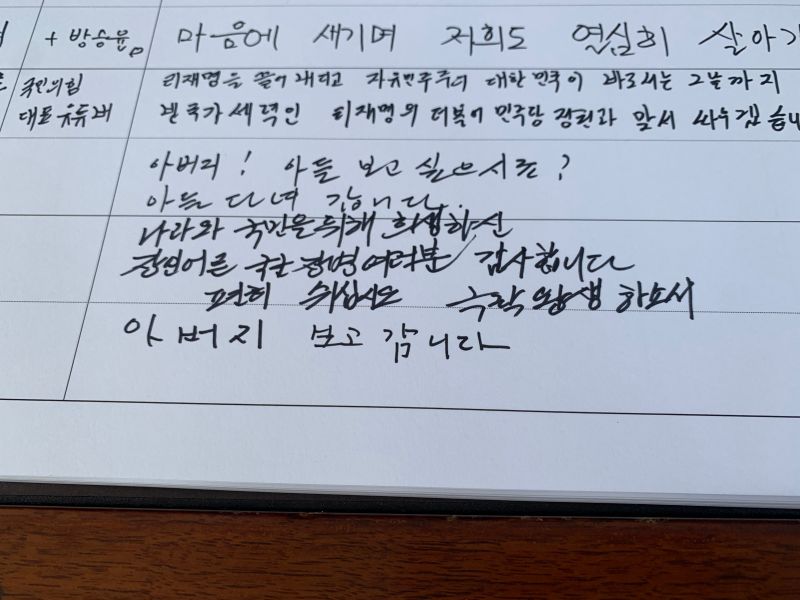 + 방승윤 마음에 새기며 저희도 열심히 살아가
국민의힘 티재명을 끌어 내리고 자유민주주의 대한민국이 바로서는 그날까지
대표유튜버 반국가세력인 티재명의 더불어 민주당 정권과 앞서 싸우겠습니
아버지! 아들 보고 싶으시죠?
아들 다녀 갑니다.
나라와 국민을 위해 희생하신
장인어른 국군 장병 여러분 감사합니다
편히 쉬십시오 극락왕생 하소서
아버지 보고 갑니다